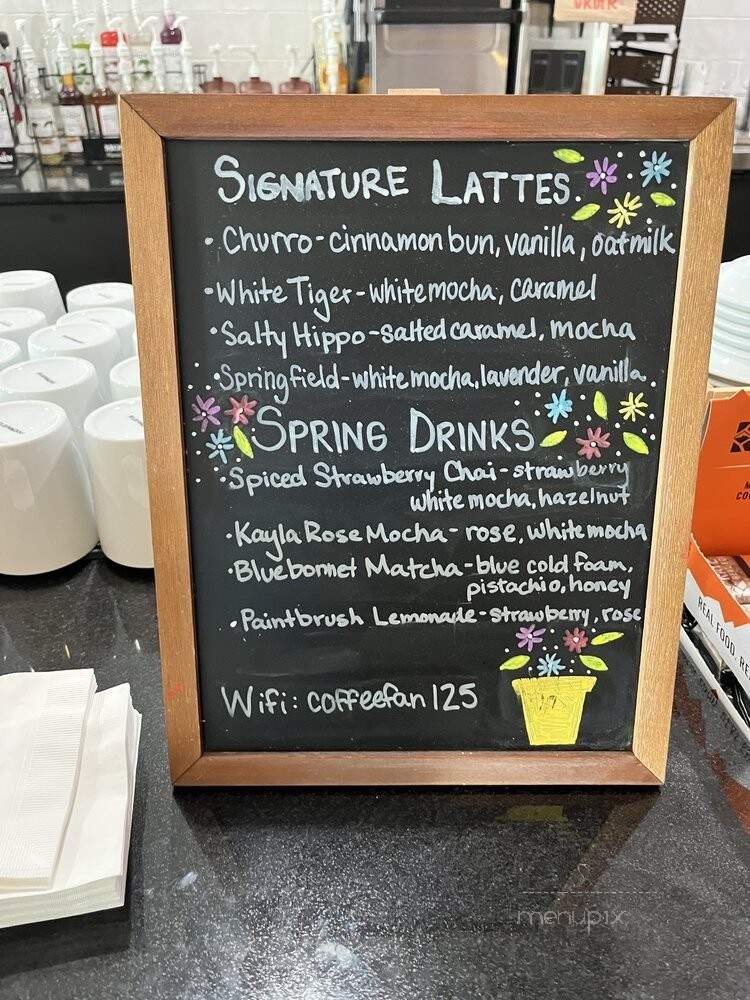 ORDER
SIGNATURE LATTES
• Churro - cinnamon bun, vanilla, oatmilk
• White Tiger - white mocha, caramel
• Salty Hippo - salted caramel, mocha
• Springfield - white mocha, lavender, vanilla
SPRING DRINKS
• Spiced Strawberry Chai - strawberry
white mocha, hazelnut
• Kayla Rose Mocha - rose, white mocha
• Bluebonnet Matcha - blue cold foam,
pistachio, honey
• Paintbrush Lemonade - strawberry, rose
Wifi: coffeefan125
REAL FOOD. RE
menupix